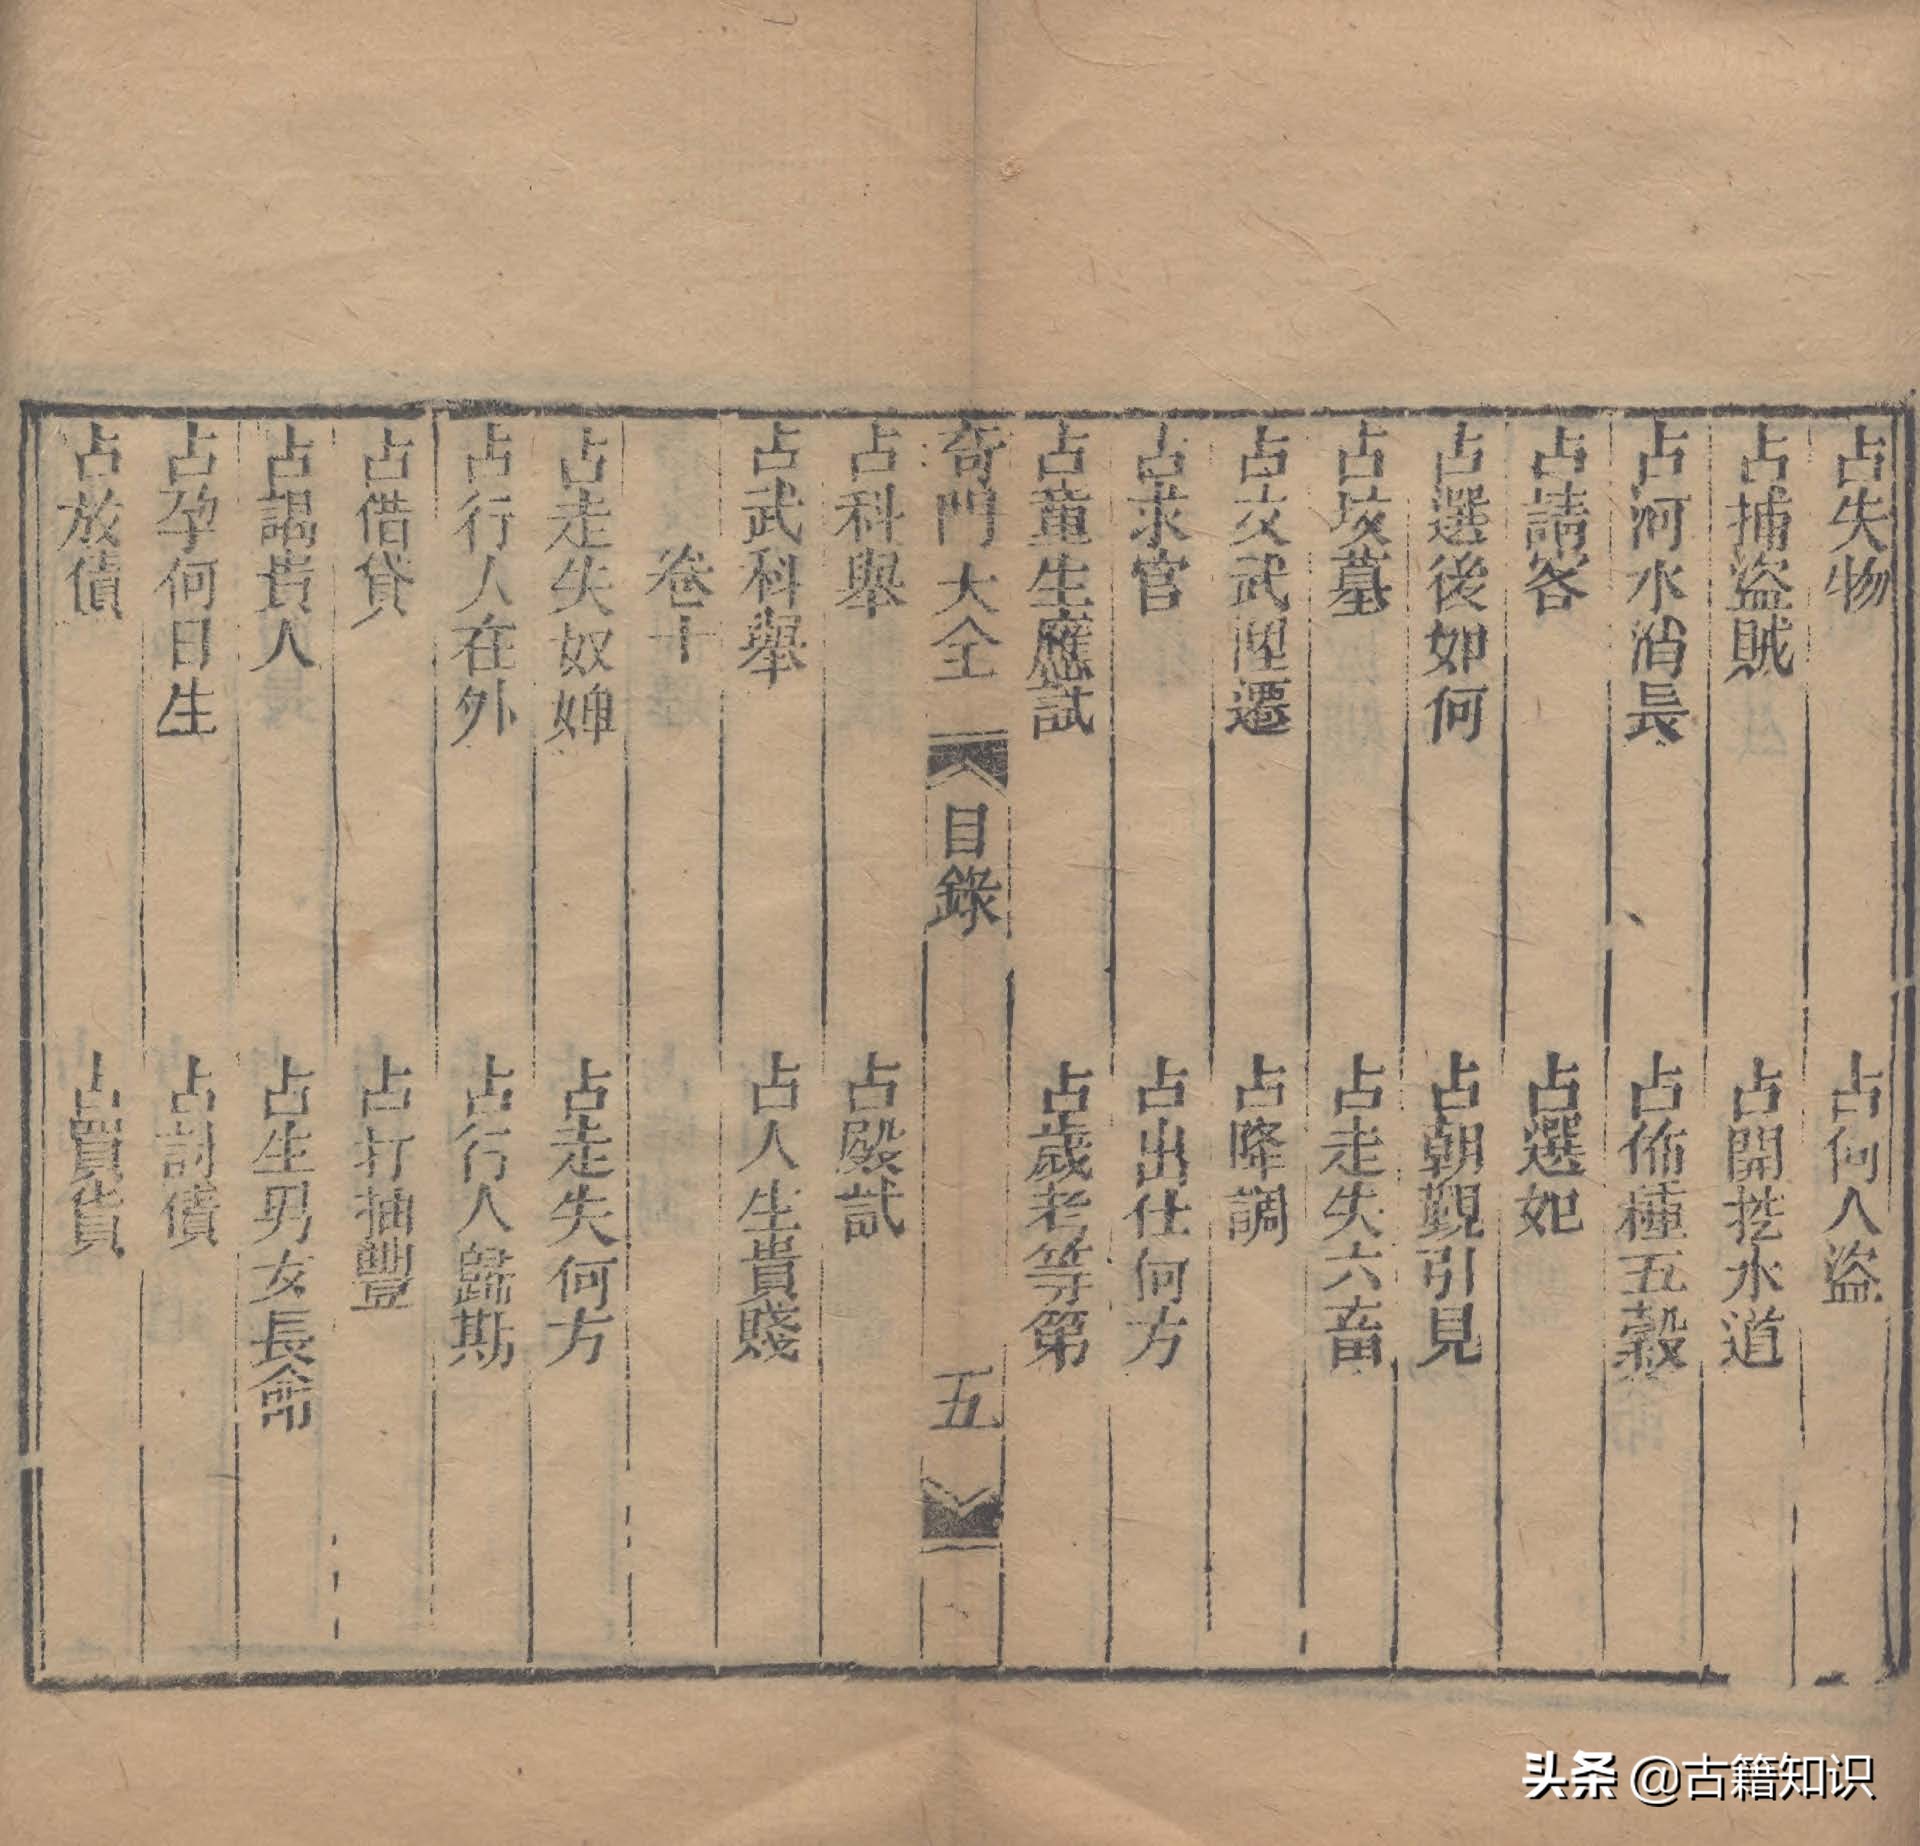 占失物　占何人盜
占捕盜賊　占開挖水道
占河水消長　占佈種五穀
占請客　占選妃
占選後如何　占朝覲引見
占墳墓　占走失六畜
占文武陞遷　占降調
占求官　占出仕何方
占童生應試　占歲考等第
奇門大全　目錄　五
占科舉　占殿試
占武科舉　占人生貴賤
卷十
占走失奴婢　占走失何方
占行人在外　占行人歸期
占借貸　占打抽豐
占謁貴人　占生男女長命
占孕何日生　占討債
占放債　占買貨
头条 @古籍知识